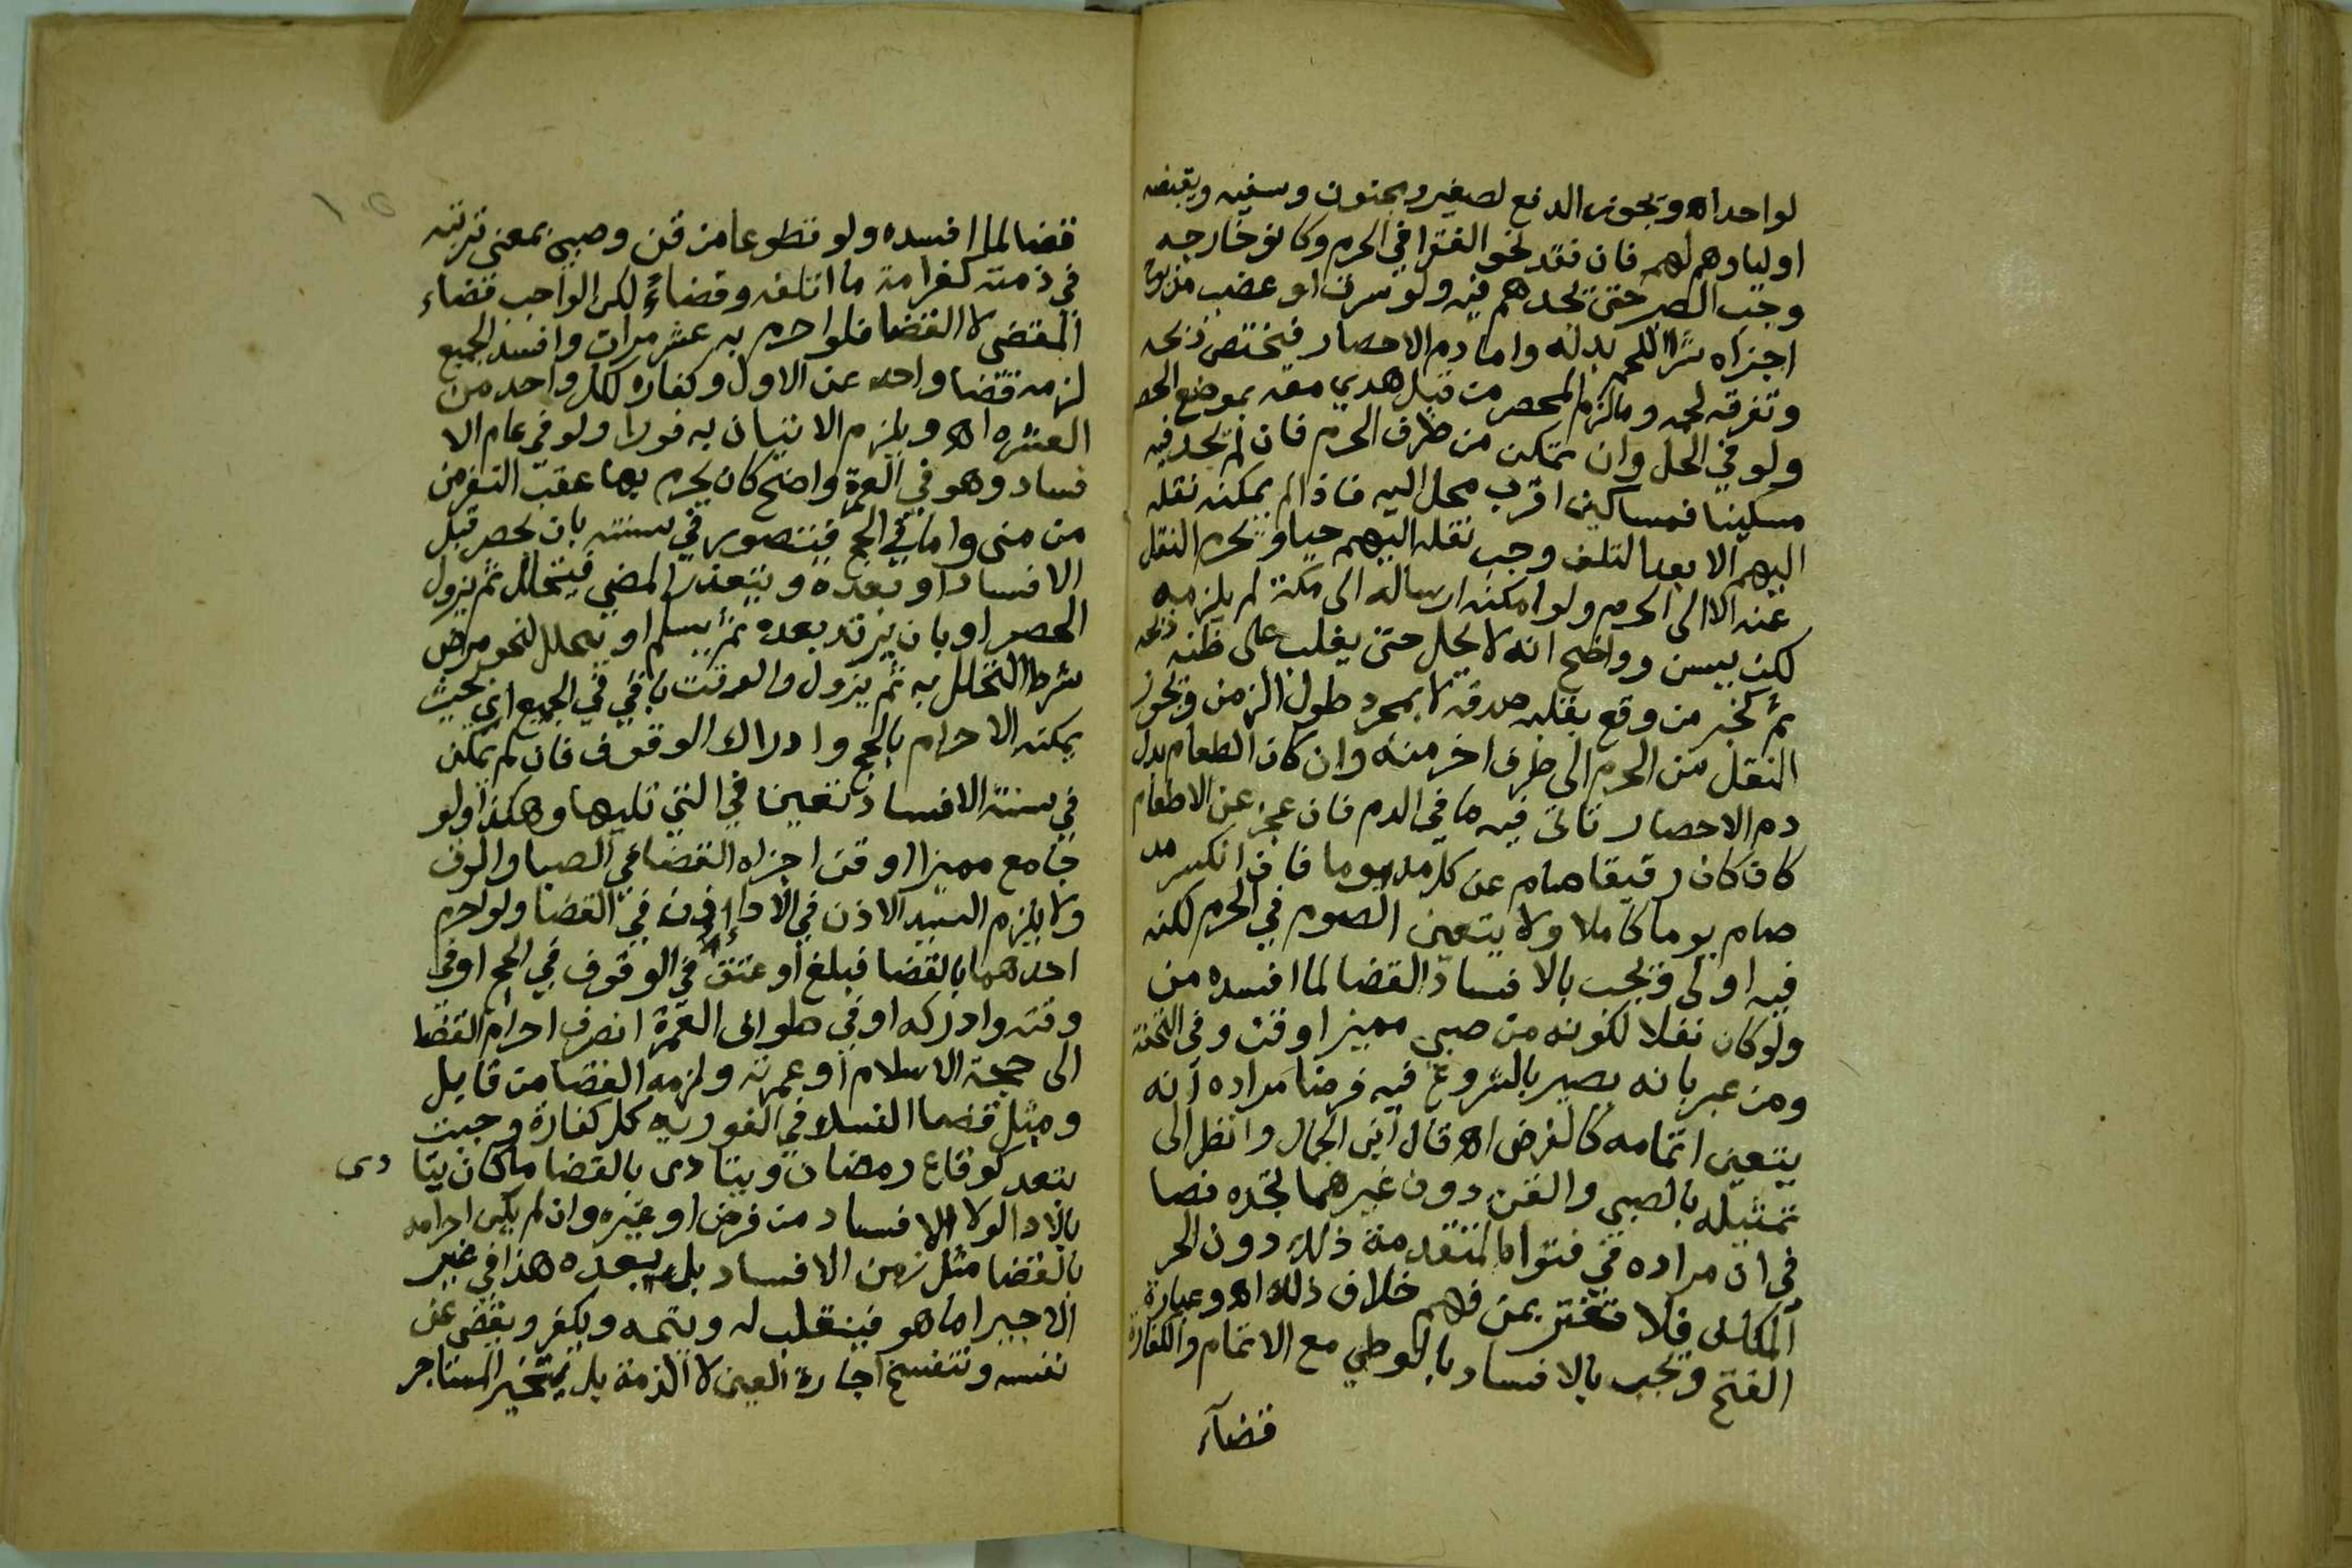 لواحد اه ويجوز الدفع لصغير ومجنون وسفيه ويقبضه
اوليا وهم لهم فان فقد نحو الفقرا في الحرم وكانو خارجه
وجب الصبر حتى يجدهم فيه ولو سرق او غصب من
اجزاه شرا اللحم بدله واما دم الاحصار فيختص ذبحه
وتفرقه لحمه وما لزم المحصر من قبل هدي معه بموضع الحصر
ولو في الحل وان تمكن من طرف الحرم فان لم يجد فيه
مسكينا فمساكين اقرب محل اليه فاذا لم يمكنه نقله
اليهم الا بعد التلف وجب نقله اليهم حيا ويحرم النقل
عنه الا الى الحرم ولو امكنه ارساله الى مكة لم يلزمه
لكن يسن وواضح انه لا يحل حتى يغلب على ظنه ذبحه
ثم كخبر من وقع بقلبه صدقه لا بمجرد طول الزمن ويجوز
النقل من الحرم الى طرف اخر منه وان كان الطعام بدل
دم الاحصار تاتى فيه ما في الدم فان عجز عن الاطعام
كان كان رقيقا صام عن كل مد يوما فان انكسر مد
صام يوما كاملا ولا يتعين الصوم في الحرم لكنه
فيه اولى ويجب بالافساد القضا لما افسده من
ولو كان نفلا لكونه من صبي مميز او قن وفي التحفة
ومن عبر بانه يصير بالشروع فيه فرضا مراده انه
يتعين اتمامه كالفرض اه قال ابن الجمال وانظر الى
تمثيله بالصبي والقن دون غيرهما تجده نصا
في ان مراده في فتواه المتقدمة ذلك دون الحر
المكلف فلا تغتر بمن فهم خلاف ذلك اه وعبارة
الفتح ويجب بالافساد بالوطي مع الاتمام والكفارة
قضآء
قضا لما افسده ولو تطوعا من قن وصبي بمعنى ترتبه
في ذمته كغرامة ما اتلفه وقضاءً لكن الواجب قضاء
المقضي لا القضا فلو احرم به عشر مرات وافسد الجميع
لزمه قضا واحد عن الاول وكفارة لكل واحد من
العشره اه ويلزم الاتيان به فورا ولو في عام الا
فساد وهو في العمرة واضح كان يحرم بها عقب النفر من
من منى واما في الحج فيتصور في سنته بان يحصر قبل
الافساد او بعده ويتعذر المضي فيتحلل ثم يزول
الحصر او بان يرتد بعده ثم يسلم او يتحلل لنحو مرض
شرط التحلل به ثم يزول والوقت باقي في الجميع اي بحيث
يمكنه الاحرام بالحج وادراك الوقوف فان لم يمكن
في سنة الافساد تعين في التي تليها وهكذا ولو
جامع مميز او قن اجزاه القضا في الصبا والرق
ولا يلزم السيد الاذن في القضا ولو احرم
احدهما بالقضا فبلغ او عتق في الوقوف في الحج او في
وقته وادركه او في طواف العمرة انصرف احرام القضا
الى حجة الاسلام او عمرته ولزمه القضا من قابل
ومثل قضا النسك في الفورية كل كفارة وجبت
بتعد كوقاع رمضان ويتادى بالقضا ما كان يتا دى
بالادا لولا الافساد من فرض او غيره وان لم يكن احرامه
بالقضا مثل زمن الافساد بل بعده هذا في غير
الاجير اما هو فينقلب له ويتمه ويكفر ويقضي عن
نفسه وتنفسخ اجارة العين لا الذمة بل يتخير المستاجر